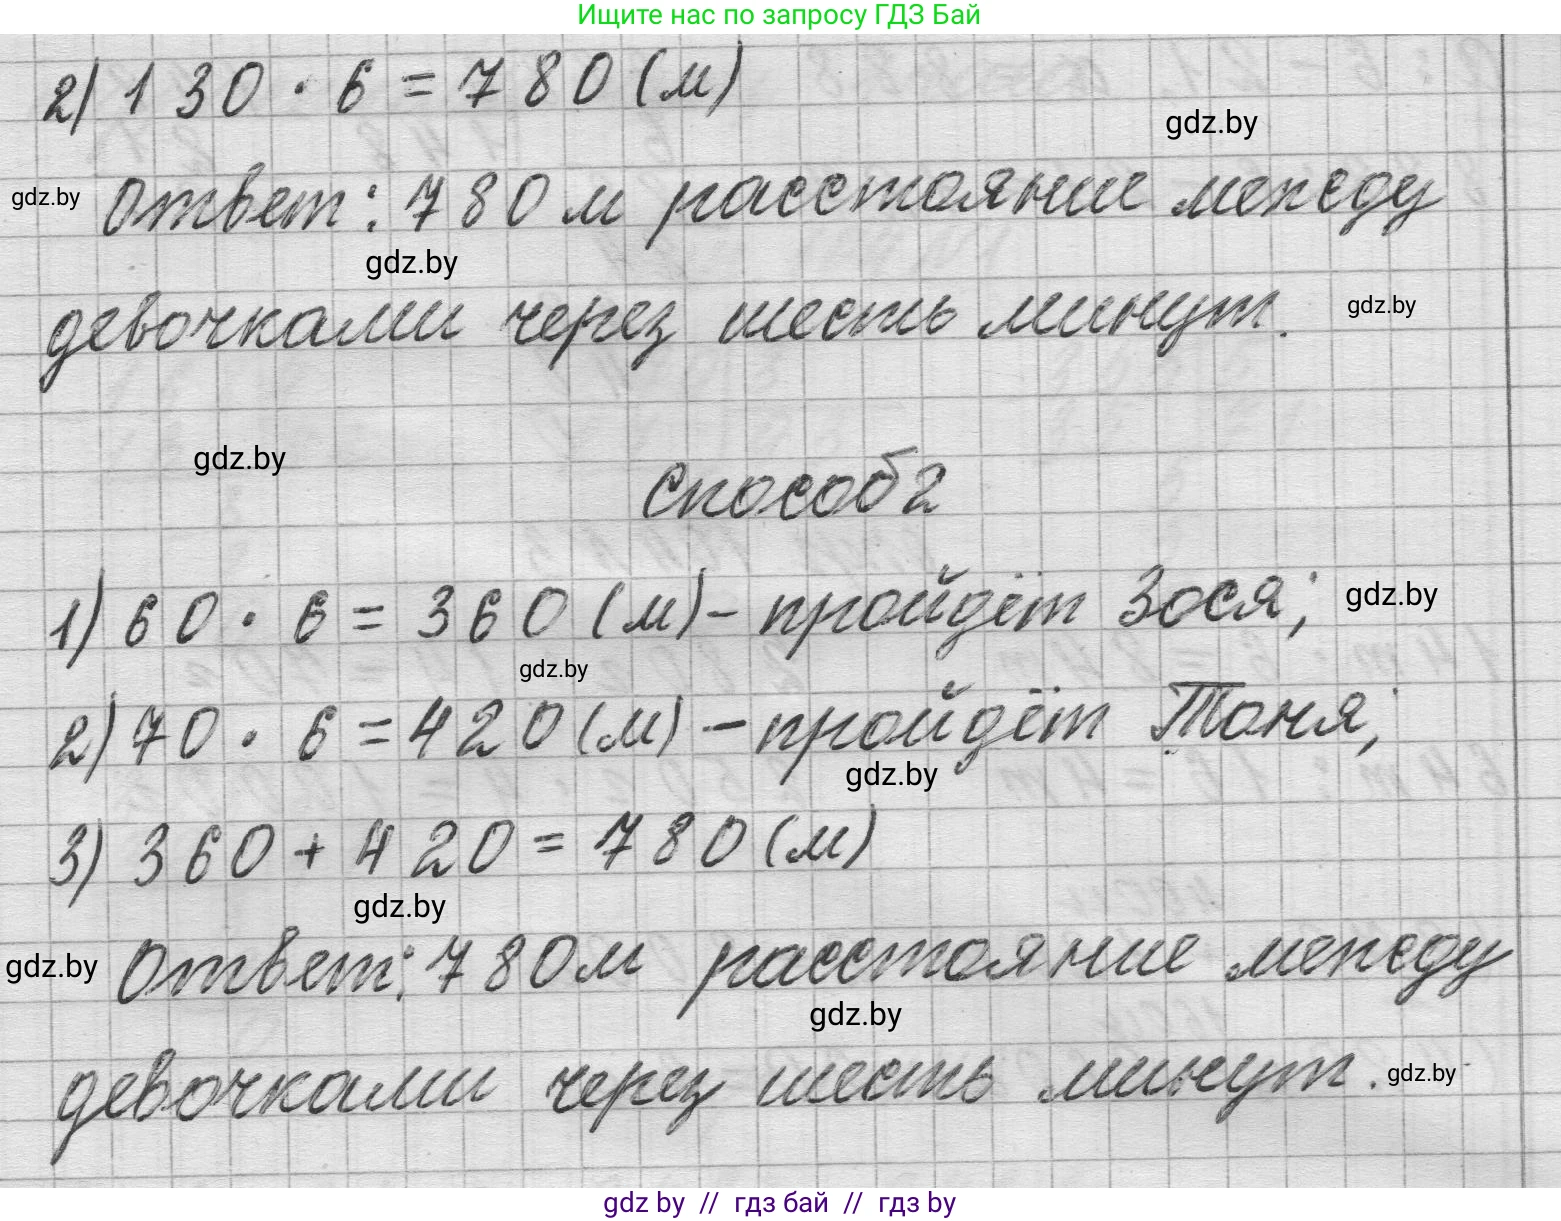 Ищите нас по запросу ГДЗ Бай
2) 130 · 6 = 780 (м)
gdz.by
gdz.by
Ответ: 780 м расстояние между
gdz.by
девочками через шесть минут.
gdz.by
gdz.by
Способ 2
1) 60 · 6 = 360 (м) - пройдёт Зося;
gdz.by
gdz.by
2) 70 · 6 = 420 (м) - пройдёт Таня;
gdz.by
3) 360 + 420 = 780 (м)
gdz.by
gdz.by
Ответ: 780 м расстояние между
gdz.by
девочками через шесть минут.
gdz.by
gdz by // гдз бай // гдз by